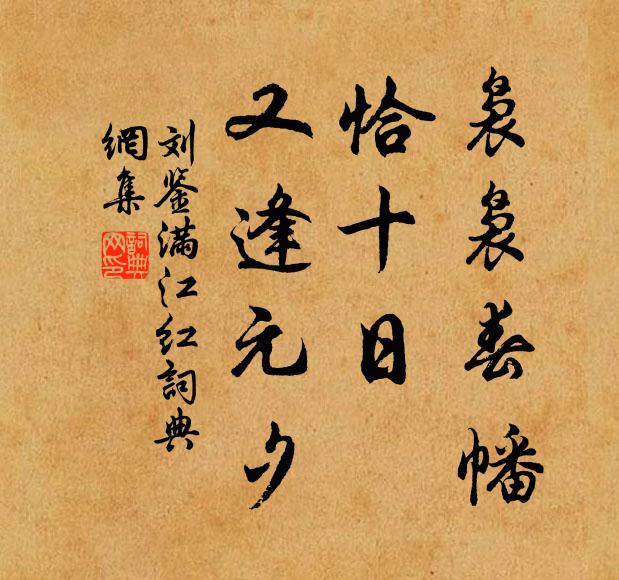 袅袅春幡
恰十日
又逢元夕
刘鉴满江红詞典
網集
詞典
网印